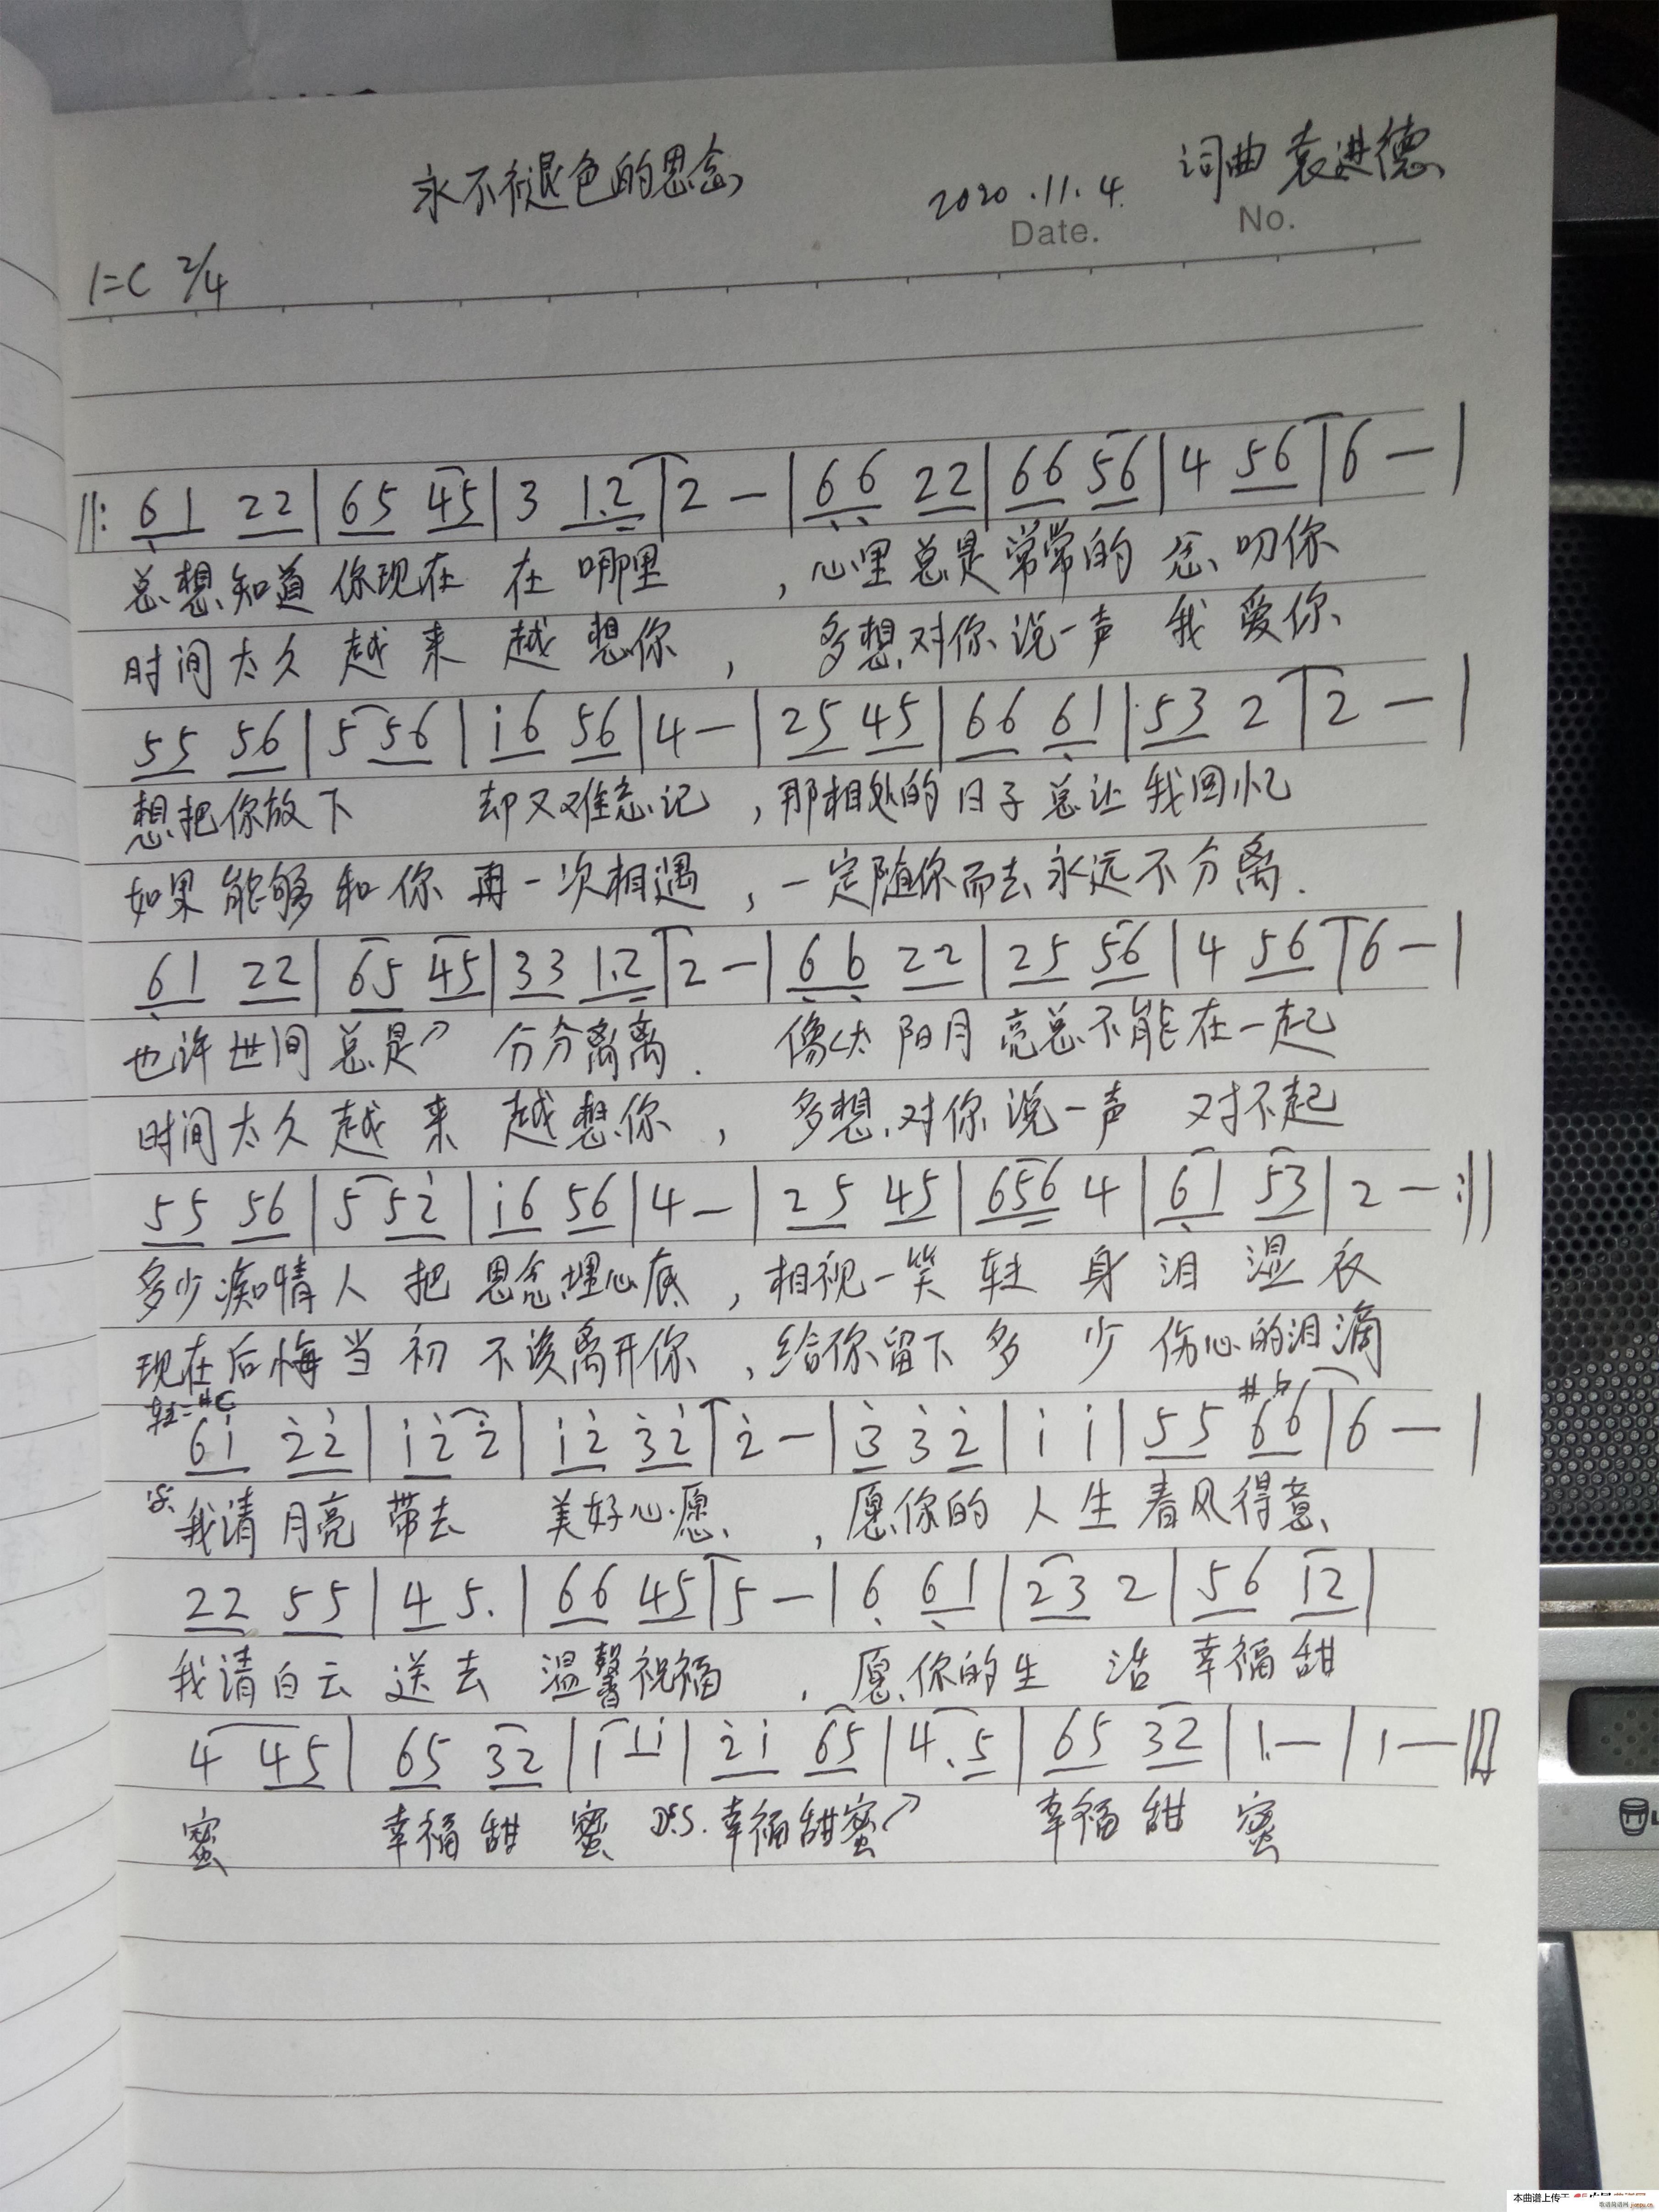 永不褪色的思念
词曲 袁进德
2020.11.4.
Date. No.
1=C 2/4
‖: 61 22 | 65 45 | 3 1.2 | 2 — | 66 22 | 66 56 | 4 56 | 6 — |
总想知道 你现在 在 哪里 , 心里总是常常的 念叨你
时间太久 越 来 越 想你 , 多想对你说一声 我 爱你
55 56 | 5 56 | i6 56 | 4 — | 25 45 | 66 61 | 53 2 | 2 — |
想把你放下 却又难忘记 , 那相处的日子总让我回忆
如果能够和你再一次相遇 , 一定随你而去永远不分离.
61 22 | 65 45 | 33 1.2 | 2 — | 66 22 | 25 56 | 4 56 | 6 — |
也许世间总是↗ 分分离离. 像太阳月亮总不能在一起
时间太久 越 来 越想你 , 多想对你说一声 对不起
55 56 | 5 52̇ | i6 56 | 4 — | 25 45 | 656 4 | 61 53 | 2 — :‖
多少痴情人 把 思念埋心底 , 相视一笑 转 身 泪 湿 衣
现在后悔当 初 不该离开你 , 给你留下多 少 伤心的泪滴
转=#C
6i 2̇2̇ | i2̇ 2̇ | i2̇ 3̇2̇ | 2̇ — | 3̇ 3̇ 2̇ | i i | 55 #6♮6 | 6 — |
我请月亮 带去 美好心愿 , 愿你的 人生春风得意
22 55 | 4 5. | 66 45 | 5 — | 6 61 | 23 2 | 56 12 |
我请白云 送去 温馨祝福 , 愿你的生 活 幸福甜
4 45 | 65 32 | i 1i | 2̇i 65 | 4. 5 | 65 32 | 1. — | 1 — ‖
蜜 幸福甜 蜜 D.S. 幸福甜蜜↗ 幸福 甜 蜜
本曲谱上传于